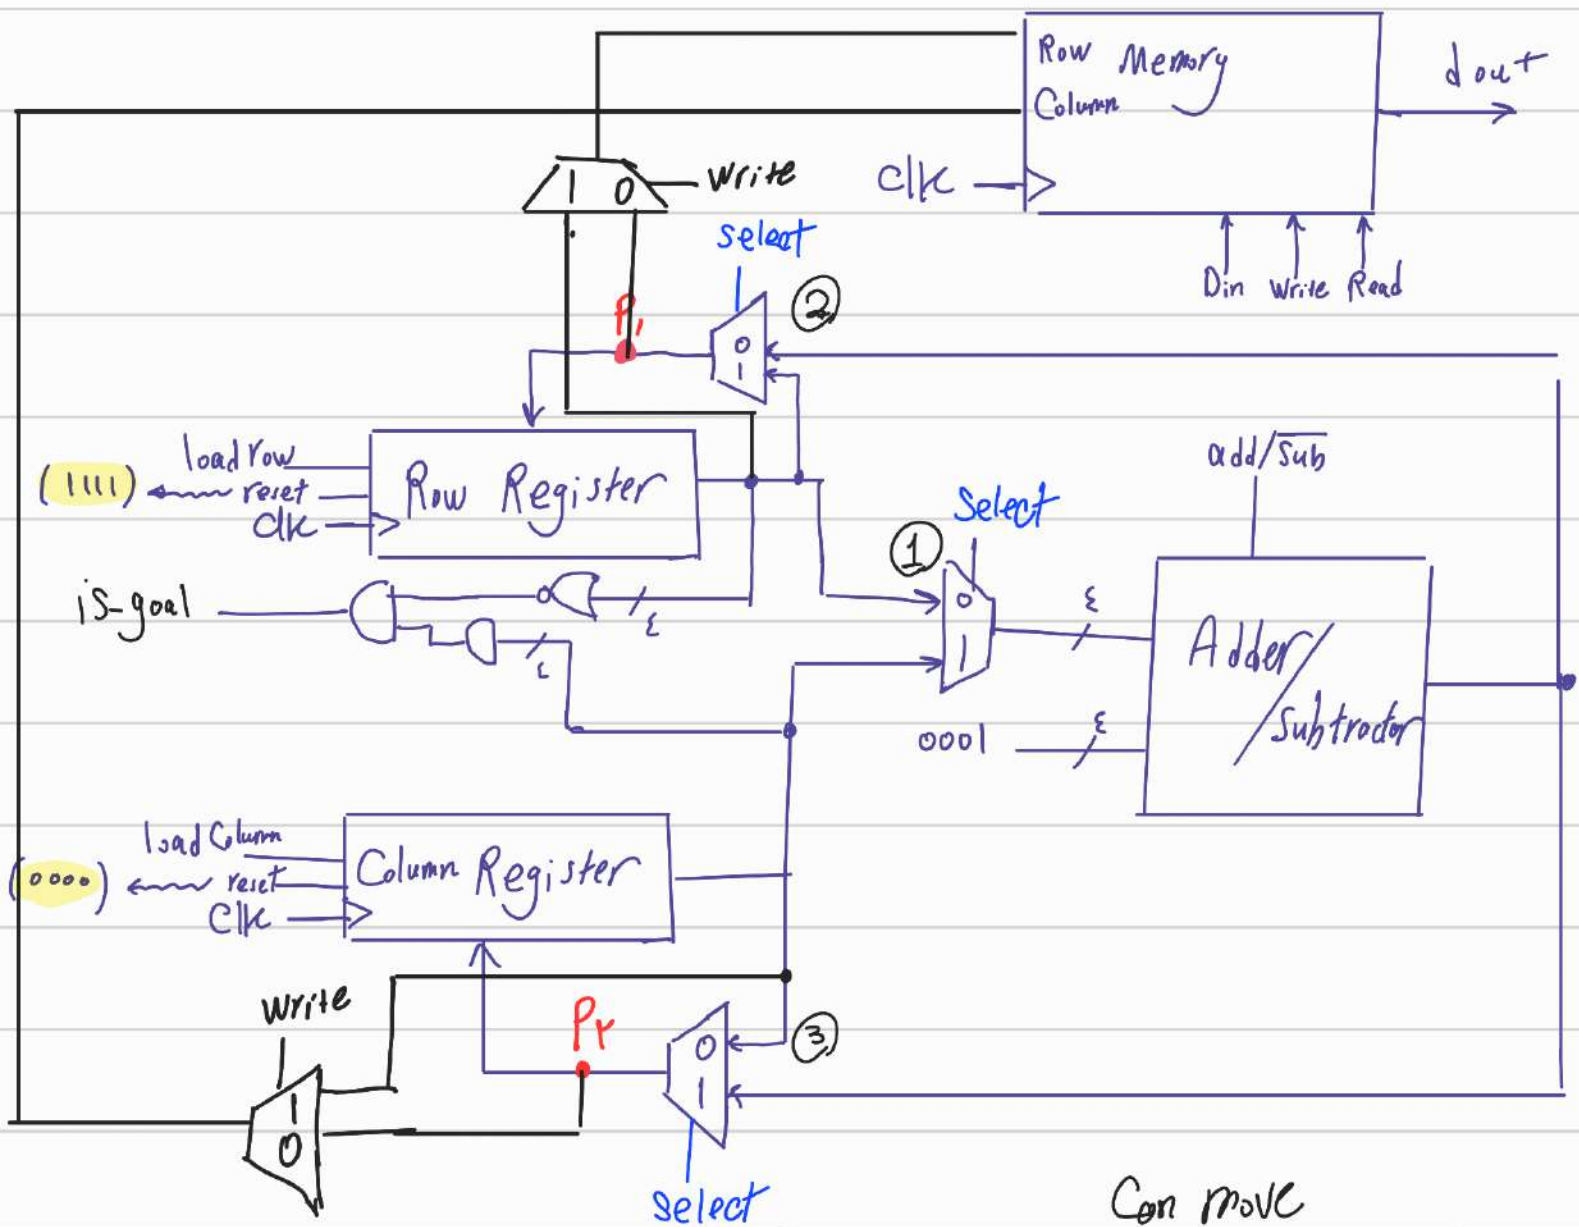 Row Memory
Column
dout
clk
Din Write Read
1 0
write
select
②
P۱
0
1
load row
(1111)
reset
clk
Row Register
add/S̅u̅b̅
Select
①
0
1
is-goal
۴
۴
۴
Adder/
Subtractor
0001
۴
load Column
(0000)
reset
Clk
Column Register
write
1
0
P۲
③
0
1
select
Can move